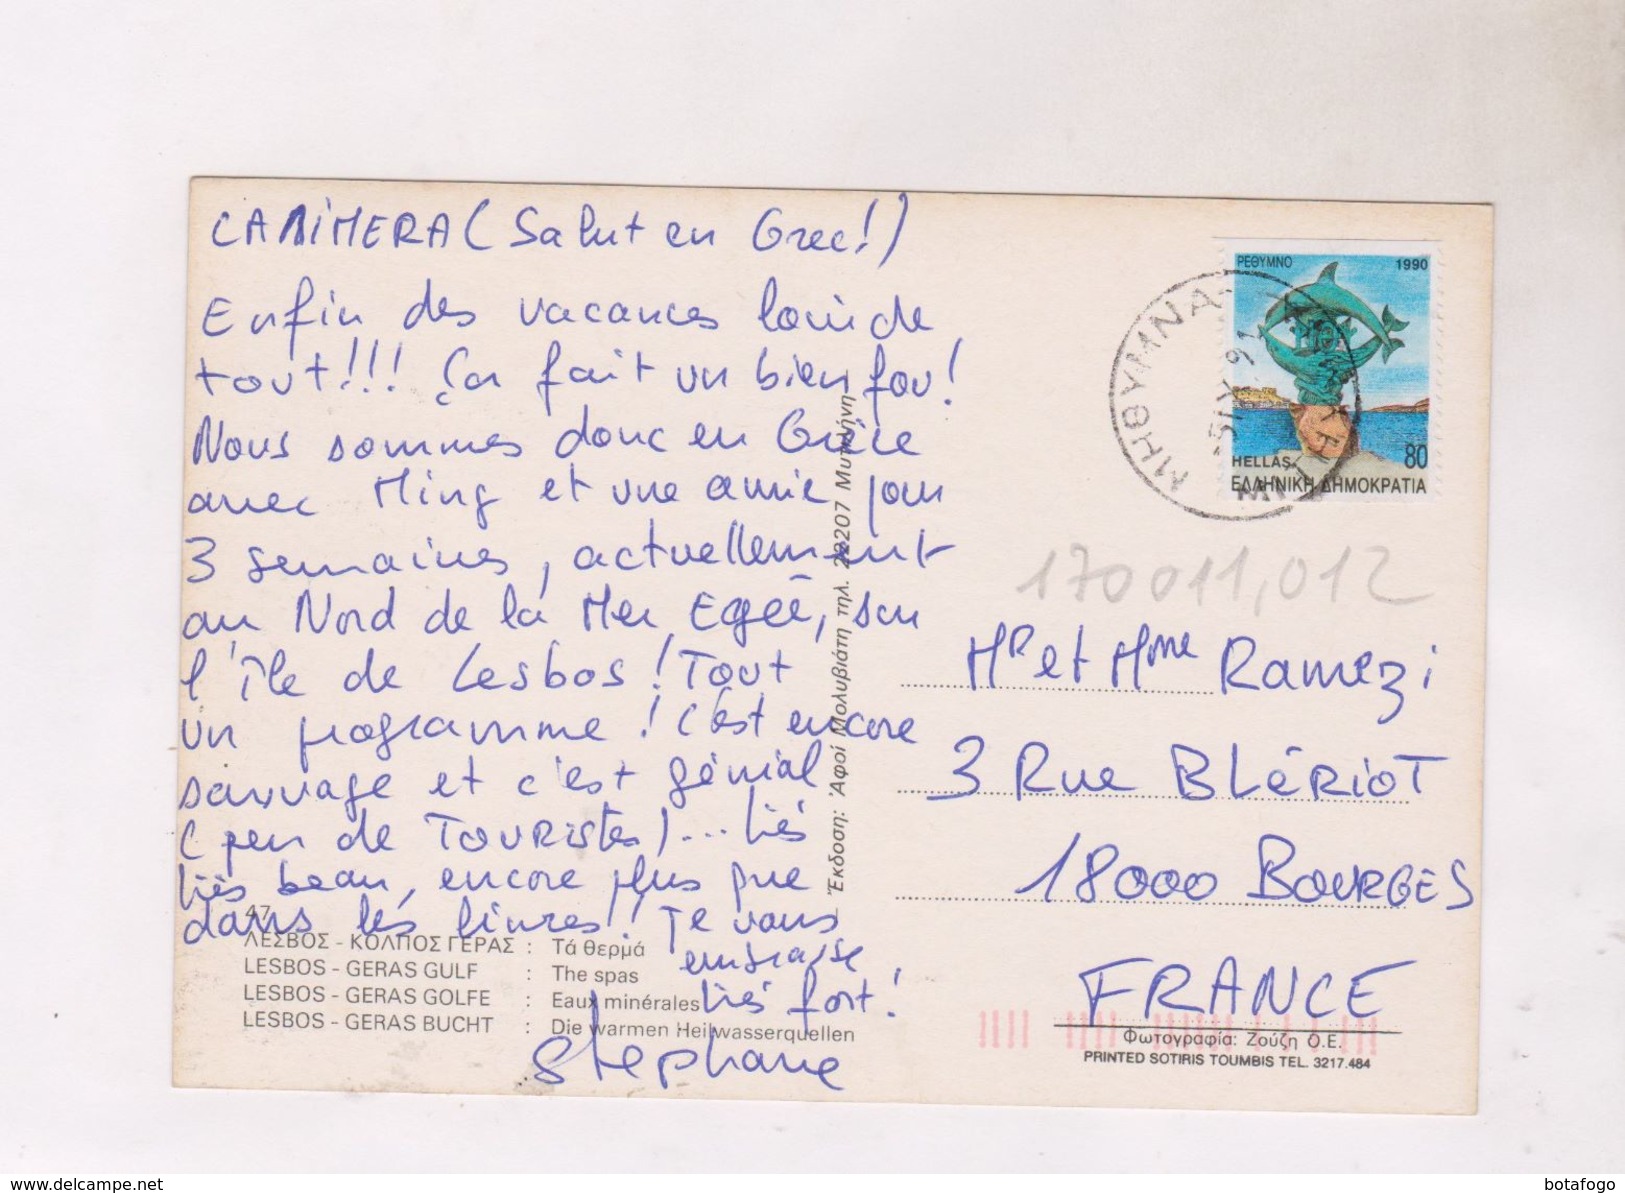 CALIMERA (Salut en Grec!)
Enfin des vacances loin de
tout!!! Ça fait un bien fou!
Nous sommes donc en Grèce
avec Ming et une amie pour
3 semaines, actuellement
au Nord de la Mer Egée, sur
l'île de Lesbos! Tout
un programme! C'est encore
sauvage et c'est génial
(peu de Touristes)... très
très beau, encore plus que
dans les livres! Je vous
embrasse
très fort!
Stephane
47
ΛΕΣΒΟΣ - ΚΟΛΠΟΣ ΓΕΡΑΣ : Τά θερμά
LESBOS - GERAS GULF : The spas
LESBOS - GERAS GOLFE : Eaux minérales
LESBOS - GERAS BUCHT : Die warmen Heilwasserquellen
Ἔκδοση: Ἀφοί Μολυβιάτη τηλ. 28207 Μυτιλήνη
ΡΕΘΥΜΝΟ 1990
80
HELLAS
ΕΛΛΗΝΙΚΗ ΔΗΜΟΚΡΑΤΙΑ
ΜΗΘΥΜΝΑ
170011,012
Mr et Mme Ramezi
3 Rue BLéRioT
18000 BOURGES
FRANCE
Φωτογραφία: Ζούζη Ο.Ε.
PRINTED SOTIRIS TOUMBIS TEL. 3217.484
www.delcampe.net
botafogo